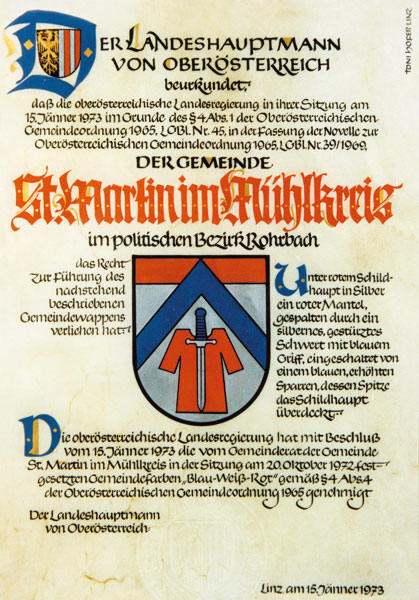 DER LANDESHAUPTMANN
VON OBERÖSTERREICH
beurkundet,
daß die oberösterreichische Landesregierung in ihrer Sitzung am
15. Jänner 1973 im Grunde des § 4 Abs. 1 der Oberösterreichischen
Gemeindeordnung 1965, LGBl. Nr. 45, in der Fassung der Novelle zur
Oberösterreichischen Gemeindeordnung 1965, LGBl. Nr. 39/1969,
DER GEMEINDE
St. Martin im Mühlkreis
im politischen Bezirk Rohrbach
das Recht
zur Führung des
nachstehend
beschriebenen
Gemeindewappens
verliehen hat:
Unter rotem Schild-
haupt in Silber
ein roter Mantel,
gespalten durch ein
silbernes, gestürztes
Schwert mit blauem
Griff, eingeschaltet von
einem blauen, erhöhten
Sparren, dessen Spitze
das Schildhaupt
überdeckt.
Die oberösterreichische Landesregierung hat mit Beschluß
vom 15. Jänner 1973 die vom Gemeinderat der Gemeinde
St. Martin im Mühlkreis in der Sitzung am 20. Oktober 1972 fest-
gesetzten Gemeindefarben „Blau-Weiß-Rot" gemäß § 4 Abs. 4
der Oberösterreichischen Gemeindeordnung 1965 genehmigt
Der Landeshauptmann
von Oberösterreich:
Linz, am 15. Jänner 1973
TONI HOFER LINZ